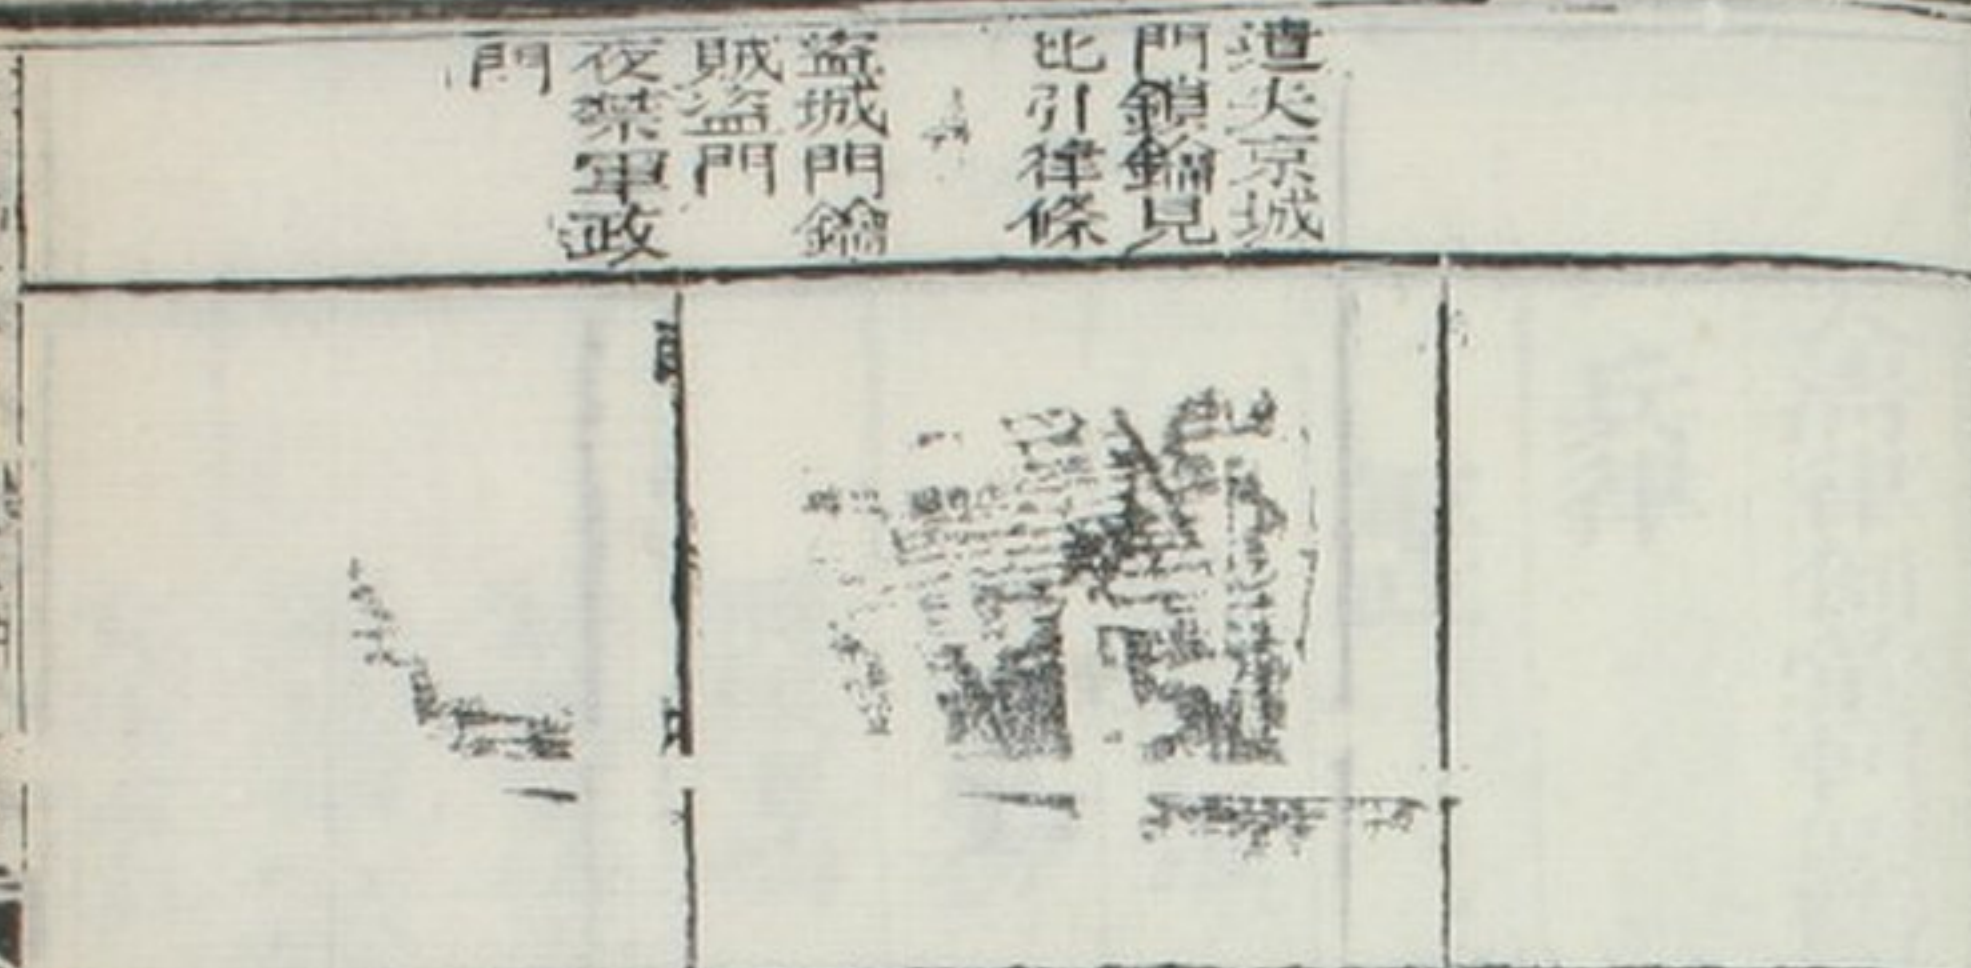 遺火京城
門鎖鑰見
比引律條
盜城門鑰
賊盜門
夜禁軍政
門